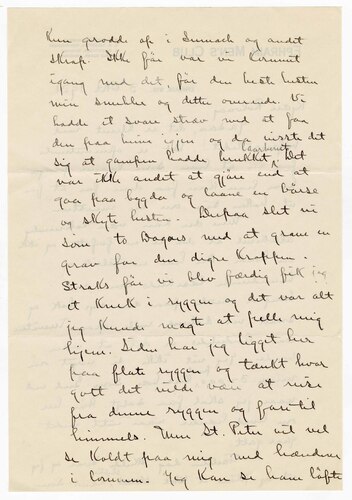 Kun grodde op i Sumach og andet
skrap. Ikke før var vi kommet
igang med det før den beste hesten
min snubler og detter overende. Vi
hadde et svare stræv med at faa
den paa bene igjen og da viste det
sig at gampen hadde brukket (aarbenet). Det
var ikke andet at gjøre end at
gaa paa bygda og laane en børse
og skyte hesten. Derpaa slet vi
som to Dagoes med at grave en
grav for den digre Kroppen.
Straks før vi blev færdig fik jeg
et Knek i ryggen og det var alt
jeg Kunde magte at pelle mig
hjem. Siden har jeg ligget her
paa flate ryggen og tænkt hvor
gott det vilde være at reise
fra denne ryggen og fare til
himmels. Men St. Peter vil vel
se Koldt paa mig med hænderne
i lommen. Jeg Kan se ham løfte
MEN'S CLUB